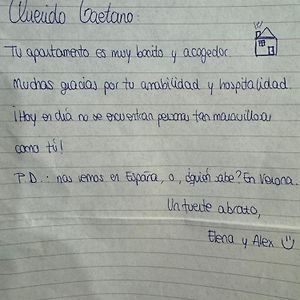 Querido Gaetano:
Tu apartamento es muy bonito y acogedor.
Muchas gracias por tu amabilidad y hospitalidad.
¡Hoy en día no se encuentran personas tan maravillosas
como tú!
P.D.: nos vemos en España, o, ¿quién sabe? En Verona.
Un fuerte abrazo,
Elena y Alex